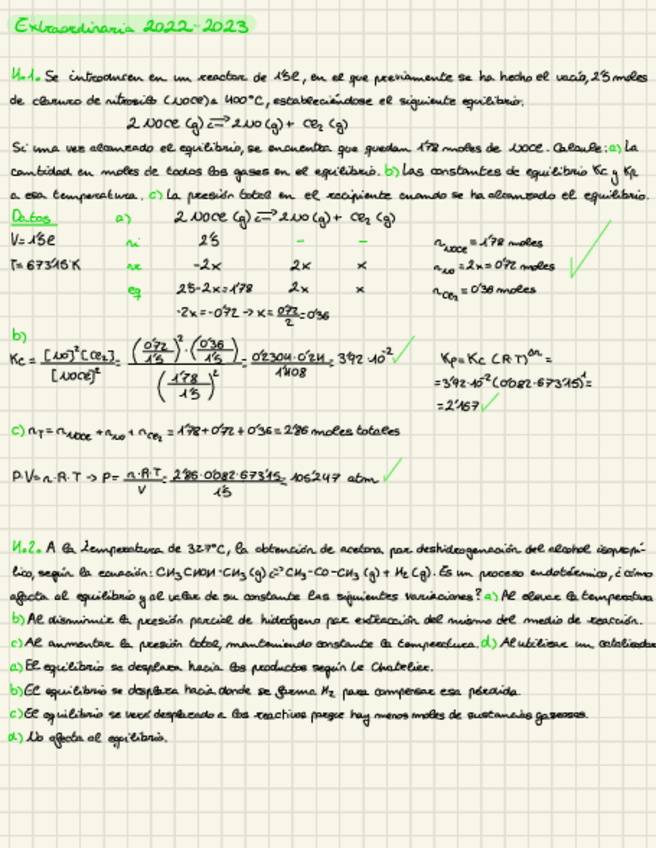 Extraordinaria 2022-2023
4.1. Se introducen en un reactor de 1'5l, en el que previamente se ha hecho el vacío, 2'5 moles
de cloruro de nitrosilo (NOCl) a 400°C, estableciéndose el siguiente equilibrio.
2 NOCl (g) ⇄ 2 NO (g) + Cl₂ (g)
Si una vez alcanzado el equilibrio, se encuentra que quedan 1'78 moles de NOCl. Calcule: a) La
cantidad en moles de todos los gases en el equilibrio. b) Las constantes de equilibrio Kc y Kp
a esa temperatura. c) La presión total en el recipiente cuando se ha alcanzado el equilibrio.
Datos a) 2 NOCl (g) ⇄ 2 NO (g) + Cl₂ (g)
V = 1'5l ni 2'5 - - n NOCl = 1'78 moles
T = 673'15 K -2x 2x x n NO = 2x = 0'72 moles
eq 2'5-2x = 1'78 2x x n Cl₂ = 0'36 moles
-2x = -0'72 → x = 0'72/2 = 0'36
b)
Kc = [NO]²[Cl₂]/[NOCl]² = (0'72/1'5)² · (0'36/1'5) / (1'78/1'5)² = 0'2304 · 0'24 / 1'408 = 3'92 · 10⁻² Kp = Kc (R·T)^Δn =
= 3'92 · 10⁻² (0'082 · 673'15)¹ =
= 2'167
c) n T = n NOCl + n NO + n Cl₂ = 1'78 + 0'72 + 0'36 = 2'86 moles totales
P·V = n·R·T → P = n·R·T/V = 2'86 · 0'082 · 673'15 / 1'5 = 105'247 atm
4.2. A la temperatura de 327°C, la obtención de acetona por deshidrogenación del alcohol isopropí-
lico, según la ecuación: CH₃ CHOH - CH₃ (g) ⇄ CH₃ - CO - CH₃ (g) + H₂ (g). Es un proceso endotérmico, ¿cómo
afecta al equilibrio y al valor de su constante las siguientes variaciones? a) Al elevar la temperatura
b) Al disminuir la presión parcial de hidrógeno por extracción del mismo del medio de reacción.
c) Al aumentar la presión total, manteniendo constante la temperatura. d) Al utilizar un catalizador
a) El equilibrio se desplaza hacia los productos según Le Chatelier.
b) El equilibrio se desplaza hacia donde se forma H₂ para compensar esa pérdida.
c) El equilibrio se verá desplazado a los reactivos porque hay menos moles de sustancias gaseosas.
d) No afecta al equilibrio.